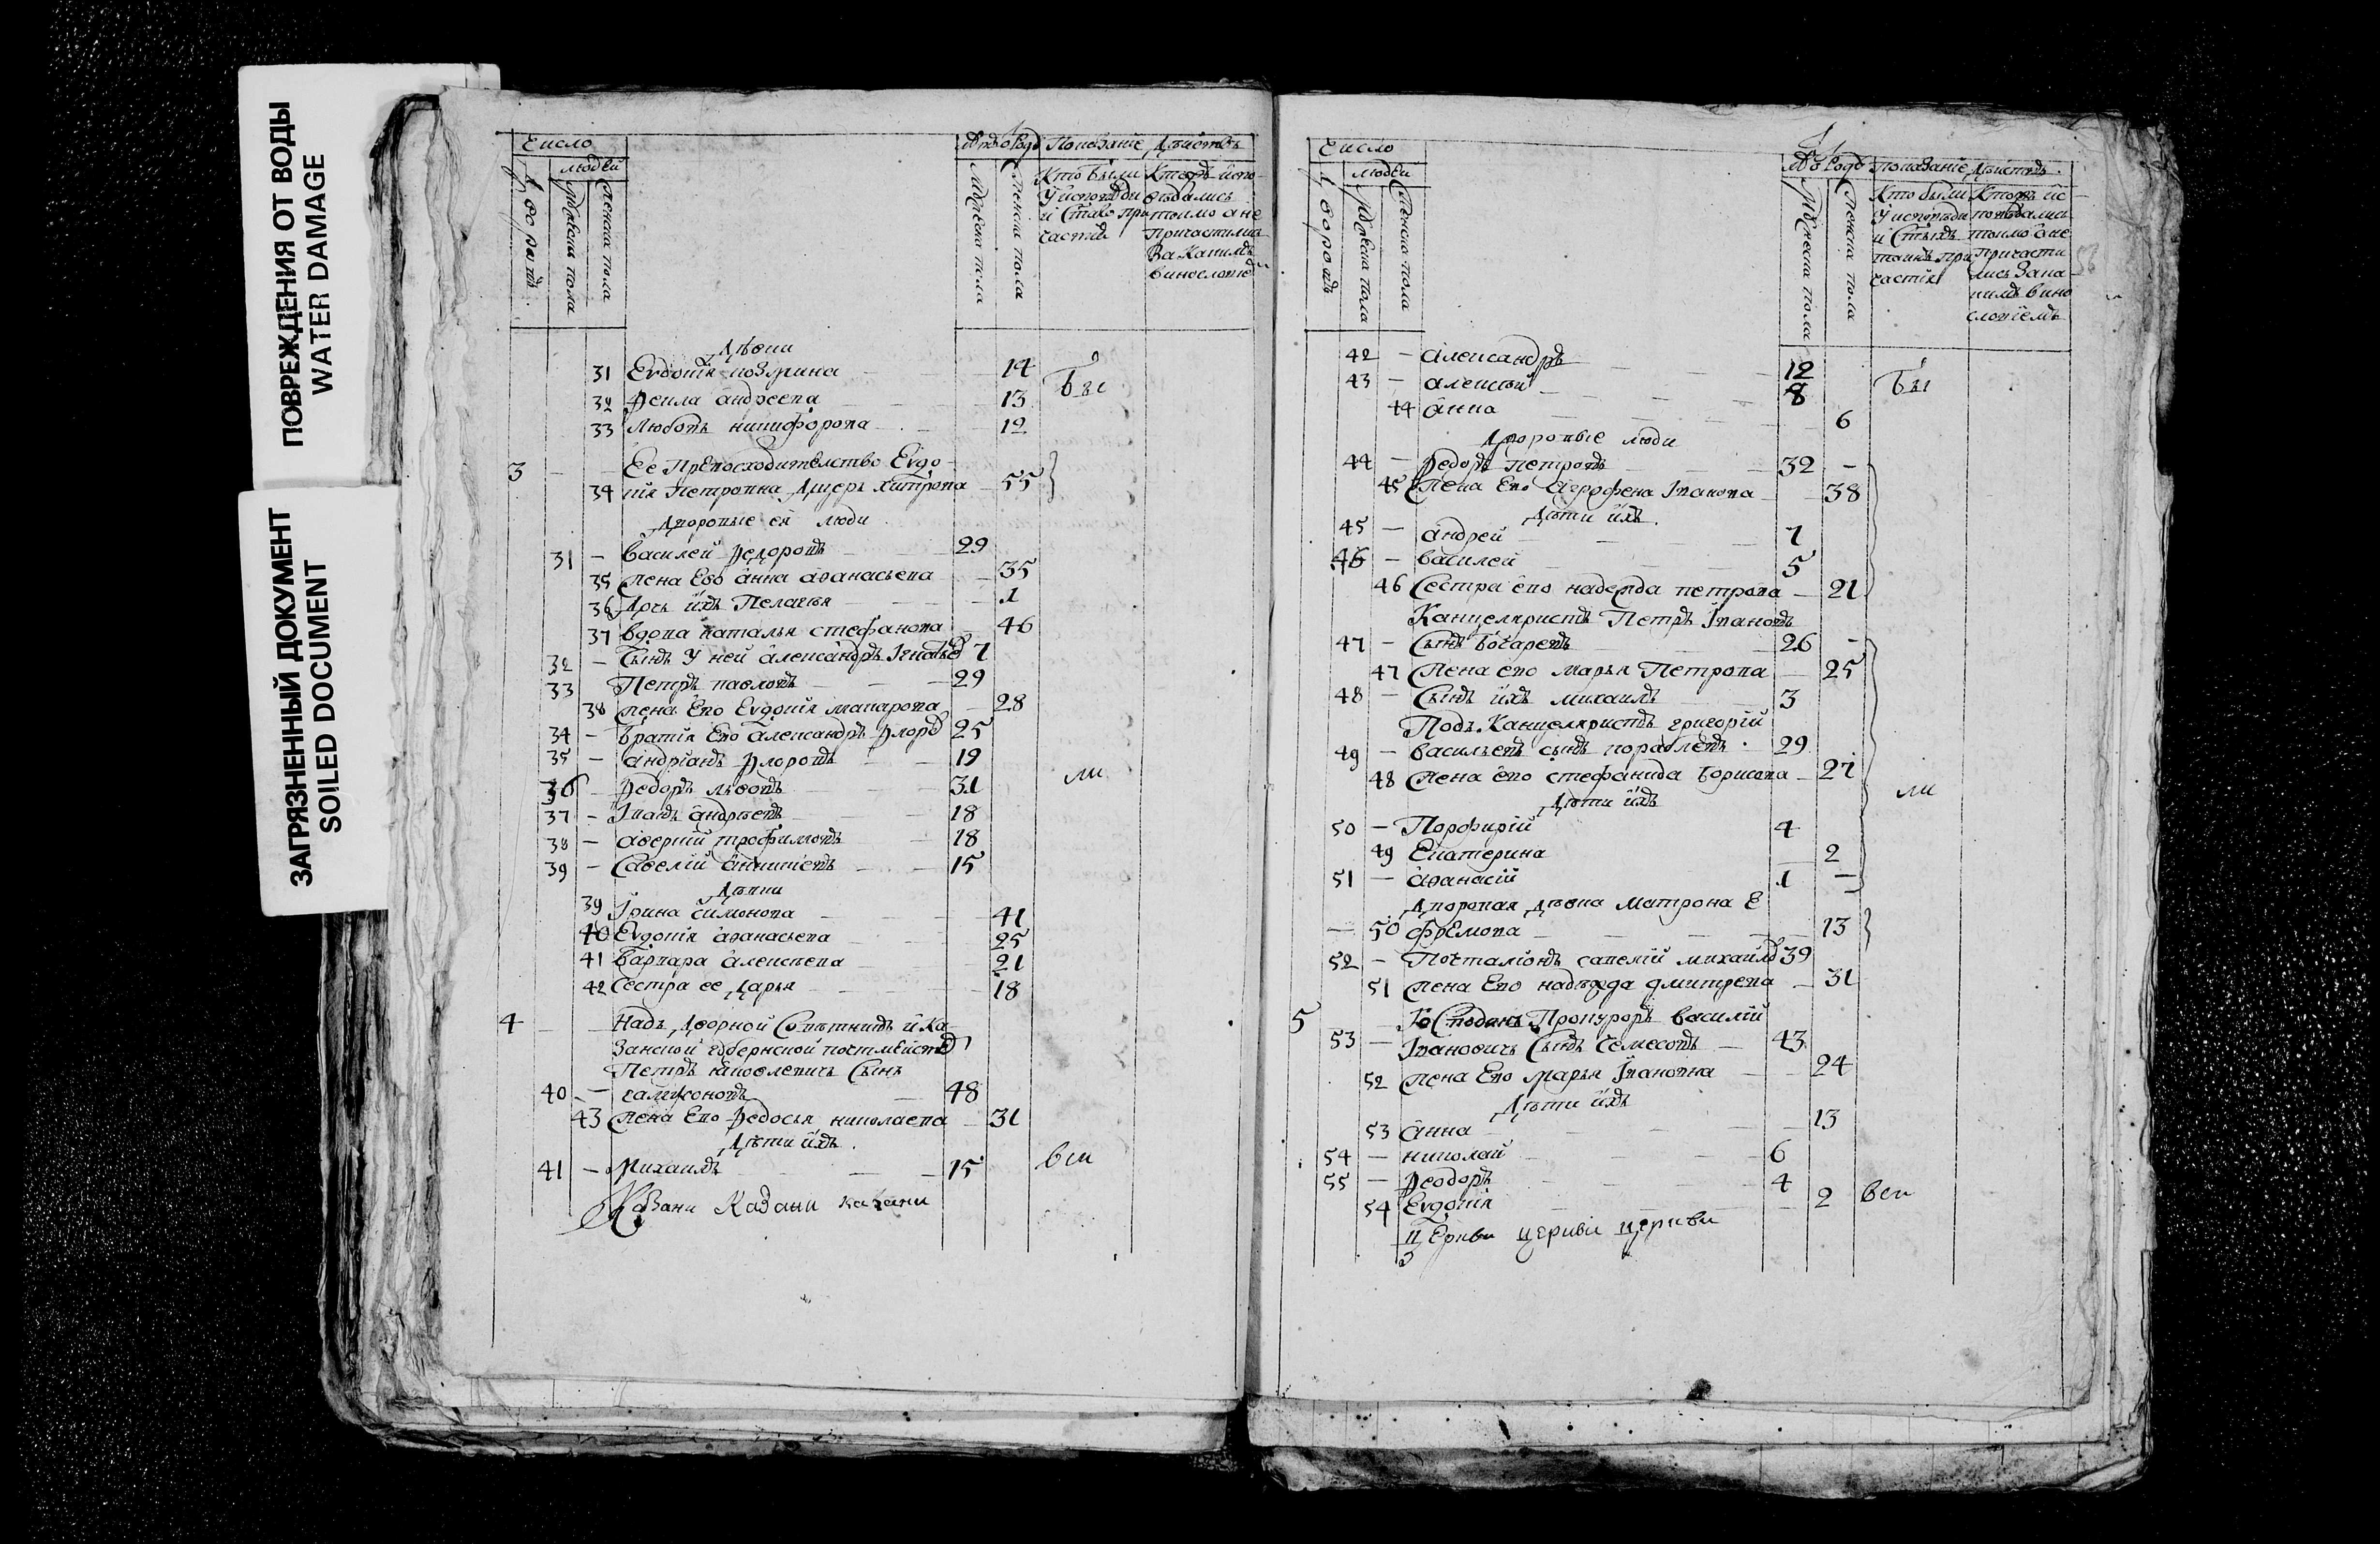 ПОВРЕЖДЕНИЯ ОТ ВОДЫ
WATER DAMAGE
ЗАГРЯЗНЕННЫЙ ДОКУМЕНТ
SOILED DOCUMENT
Число
людей
дворовъ
мужеска пола
женска пола
мужеска пола
женска пола
Показание действъ
Кто были
у исповѣди
и
Кторъ испо-
ведались
толмо а не
причастились
За какимъ
винословие
Дѣвки
31 Евдокия 14 бы
32 Фекла андреева 13
33 Любовь никифорова 12
3 Ее Превосходителство Евдо-
34 кия Петровна дщерь хитрова 55
Дворовые ея люди
31 – Василей Федоровъ 29
35 жена Ево анна афанасьева 35
36 Дочь ихъ Пелагея 1
37 вдова наталья стефанова 46
32 – Сынъ у ней александръ 7
33 Петръ павловъ 29
38 жена Ево Евдокия макарова 28
34 – братия Ево александръ 25
35 – андрианъ 19
36 – Федоръ львовъ 31 ли
37 – Иванъ андреевъ 18
38 – аверкий трофимовъ 18
39 – Савелий 15
Дѣвки
39 Ирина симонова 41
40 Евдокия афанасьева 25
41 Варвара алексѣева 21
42 Сестра ее дарья 18
4 Надъ дворной Советникъ и Ка-
занской губернской почтмейстеръ
Петръ яковлевичь Сынъ
40 – 48
43 жена Ево Федосья николаева 31
Дѣти ихъ
41 – Михаилъ 15 вси
Казани Казани казани
Число
людей
дворовъ
мужеска пола
женска пола
мужеска пола
женска пола
показание действъ
Кто были
у исповѣди
и Стыхъ
таинъ при
частия
Кторъ ис-
поведались
толмо а не
причасти
лись зака-
кимъ вино
словиемъ
42 – александръ 12 бы
43 – алексѣй 8
44 анна 6
Дворовые люди
44 – Федоръ петровъ 32 –
45 жена Ево агрофена Иванова 38
Дѣти ихъ
45 – андрей 7
46 – василей 5
46 Сестра ево надежда петрова 21
Канцеляристъ Петръ Ивановъ
47 – Сынъ бочаревъ 26 –
47 жена ево марья Петрова 25
48 – Сынъ ихъ михаилъ 3
Подъ Канцеляристъ григорий
49 – васильевъ сынъ кораблевъ 29
48 жена ево стефанида борисова 27
Дѣти ихъ ли
50 – Порфирий 4
49 Екатерина 2
51 – афанасий 1 –
Дворовая дѣвка Матрона Е
50 фремова 13
52 – Почталионъ савелий михаилъ 39
51 жена Ево надежда дмитрева 31
5 Господинъ Прокуроръ василий
53 – Ивановичь Сынъ 43
52 жена Ево марья Ивановна 24
Дѣти ихъ
53 анна 13
54 – николай 6
55 – Феодоръ 4
54 Евдокия 2 вси
церкви церкви церкви